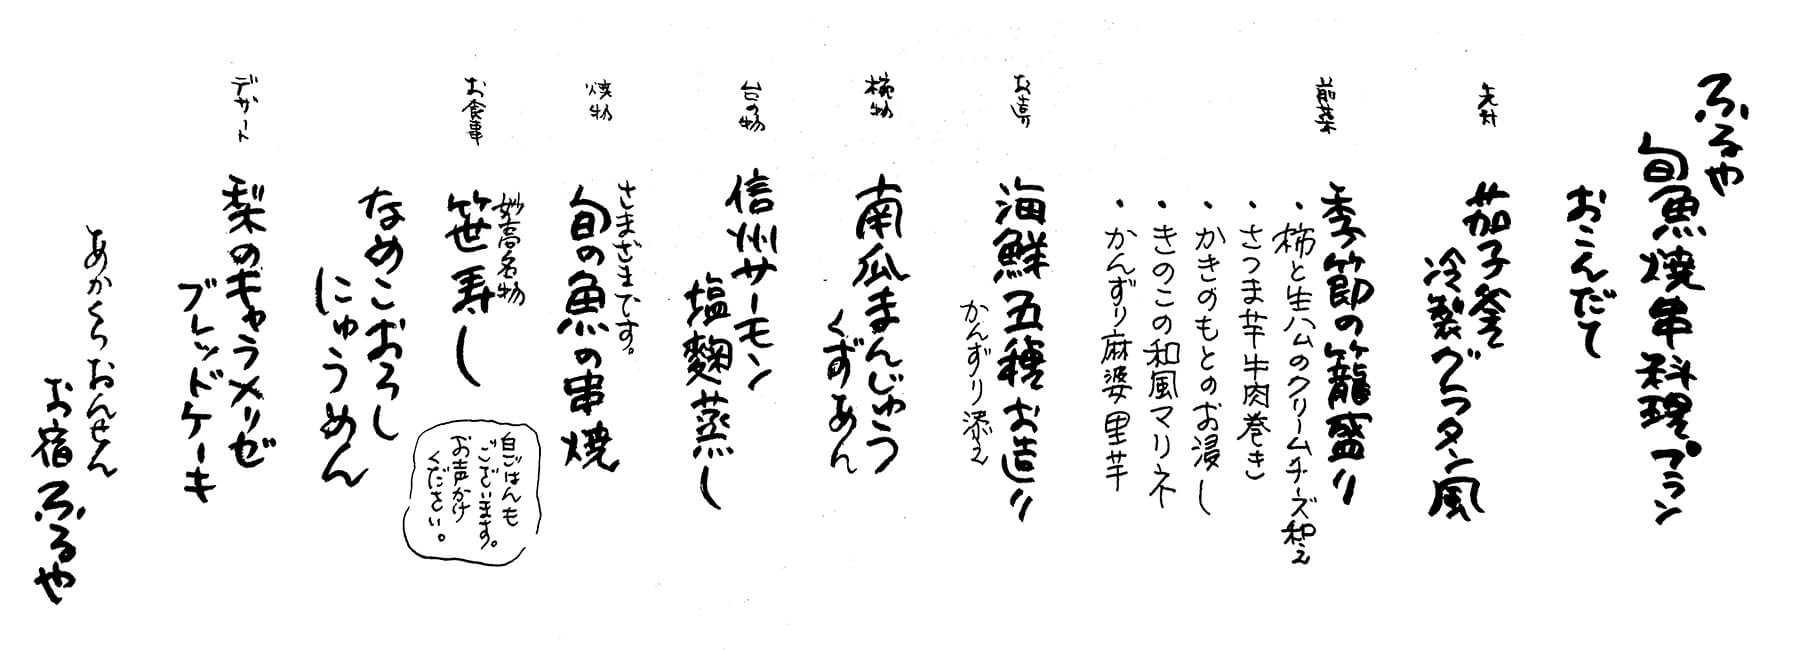 ふるや
旬魚焼串料理プラン
おこんだて
先付
茄子釜
冷製グラタン風
前菜
季節の籠盛り
・柿と生ハムのクリームチーズ和え
・さつま芋牛肉巻き
・かきのもとのお浸し
・きのこの和風マリネ
・かんずり麻婆里芋
お造り
海鮮五種お造り
かんずり添え
椀物
南瓜まんじゅう
くずあん
台の物
信州サーモン
塩麴蒸し
焼物
さまざまです。
旬の魚の串焼
お食事
妙高名物
笹寿し
白ごはんも
ございます。
お声かけ
ください。
なめこおろし
にゅうめん
デザート
梨のキャラメリゼ
ブレッドケーキ
あかくらおんせん
お宿ふるや